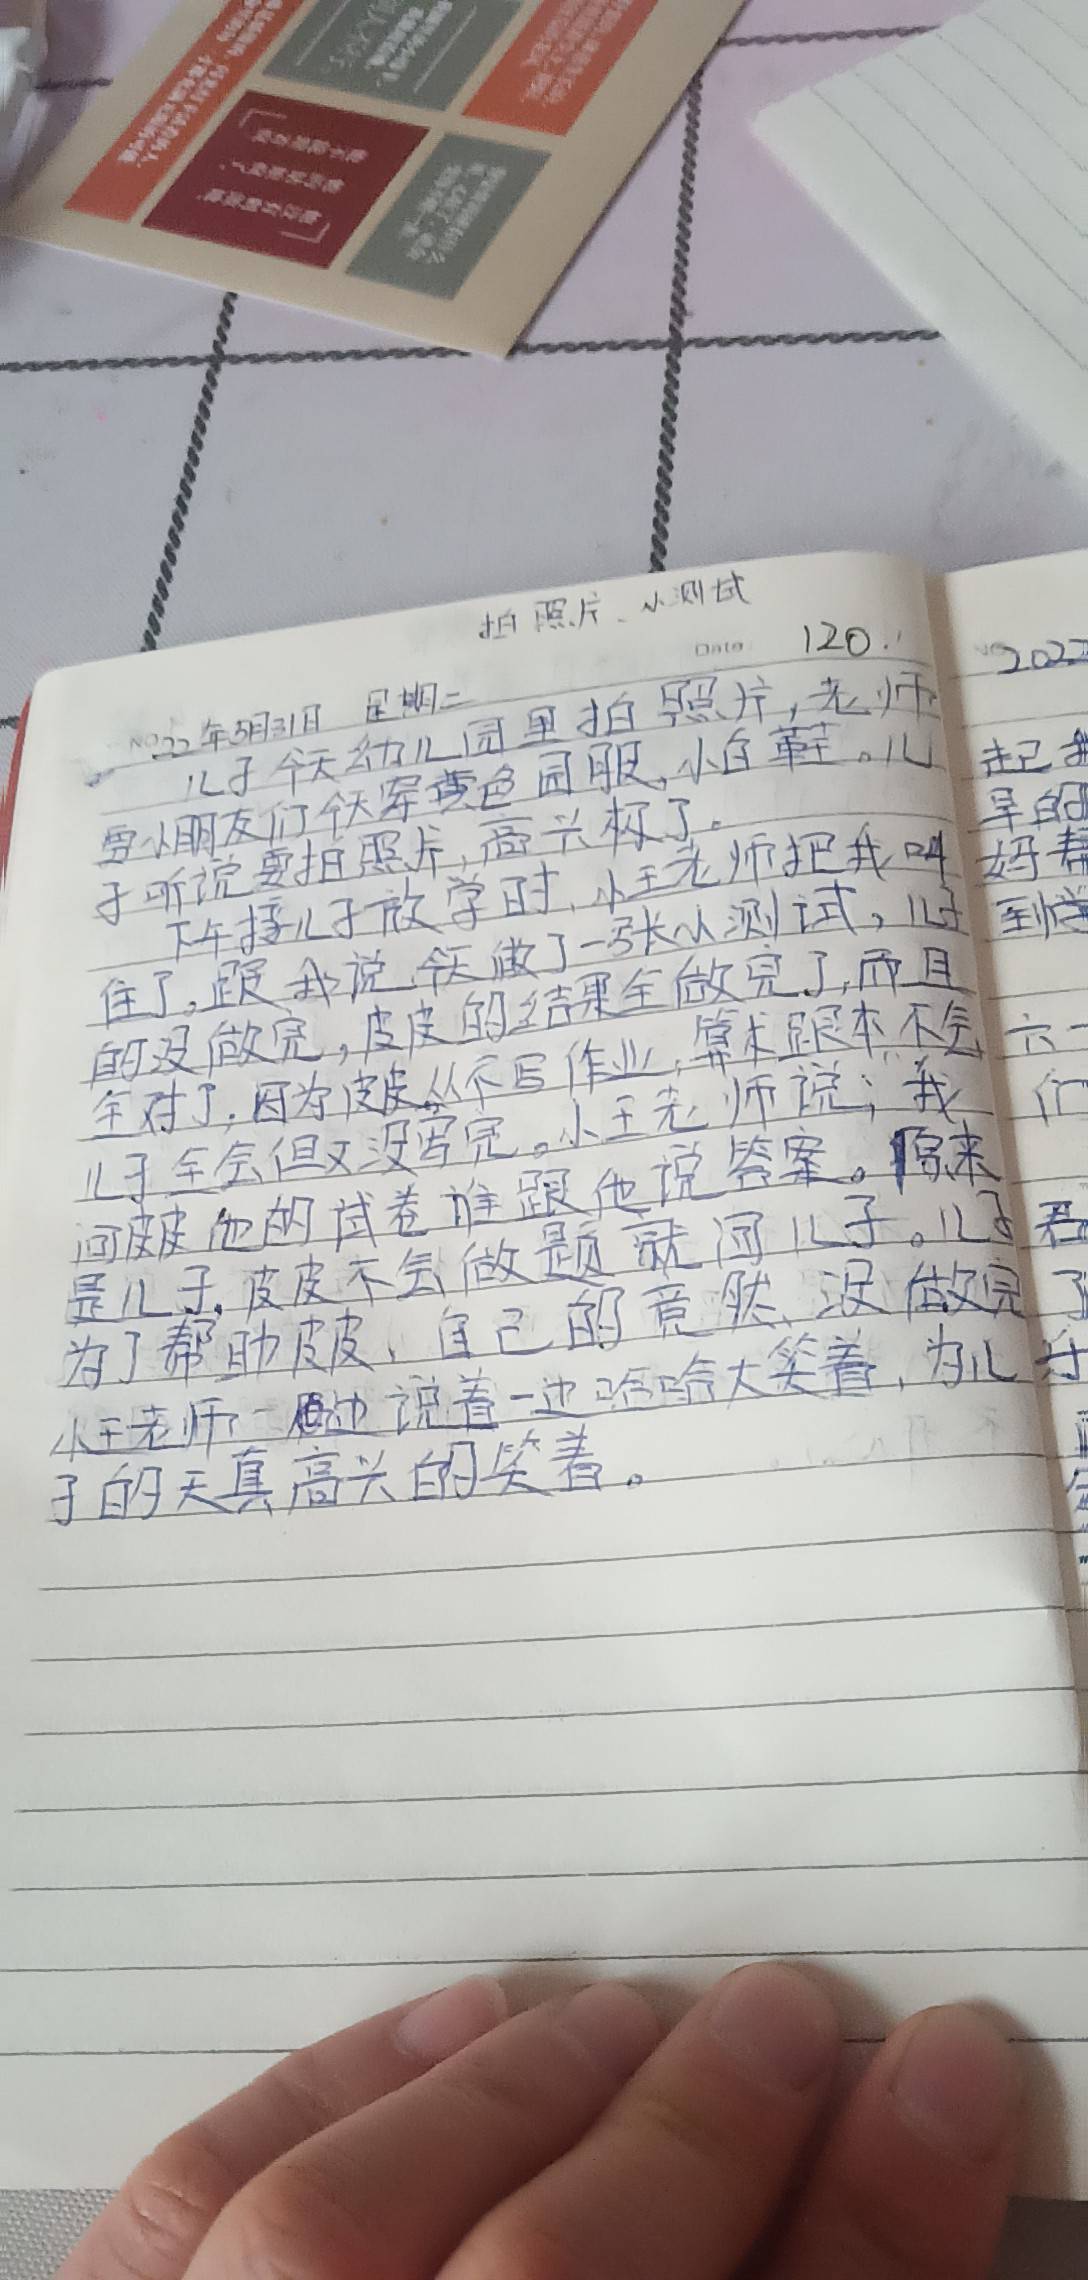 拍照片、小测试
Date 120.
NO. 22年5月31日 星期二
儿子今天幼儿园里拍照片,老师
要小朋友们今天穿黄色园服,小白鞋。儿
子听说要拍照片,高兴极了。
下午接儿子放学时,小王老师把我叫
住了。跟我说,今天做了一张小测试,儿子
的没做完,皮皮的结果全做完了,而且
全对了,因为皮皮从不写作业,算术跟本不会
儿子全会但又没写完。小王老师说;我
问皮皮他的试卷谁跟他说答案。原来
是儿子,皮皮不会做题就问儿子。儿子
为了帮助皮皮,自己的竟然没做完
小王老师一边说着一边哈哈大笑着,为儿
子的天真高兴的笑着。
2022
起
早的
妈帮
到学
六一
们
君